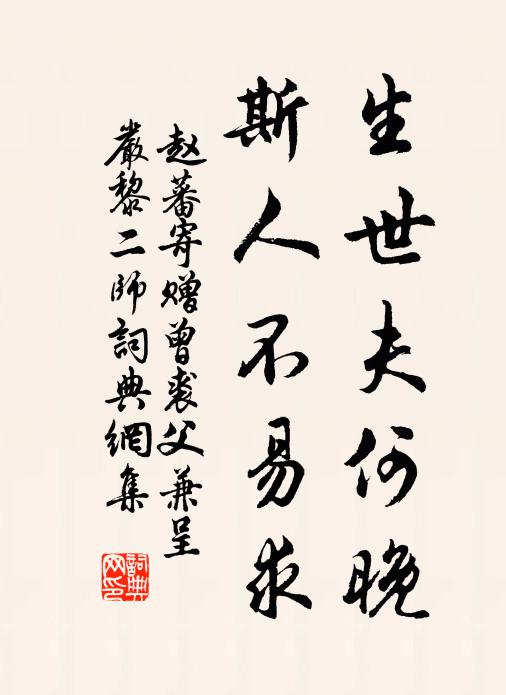 生世夫何晚
斯人不易求
赵蕃寄赠曾裘父兼呈
嚴黎二師詞典網集
詞典网印